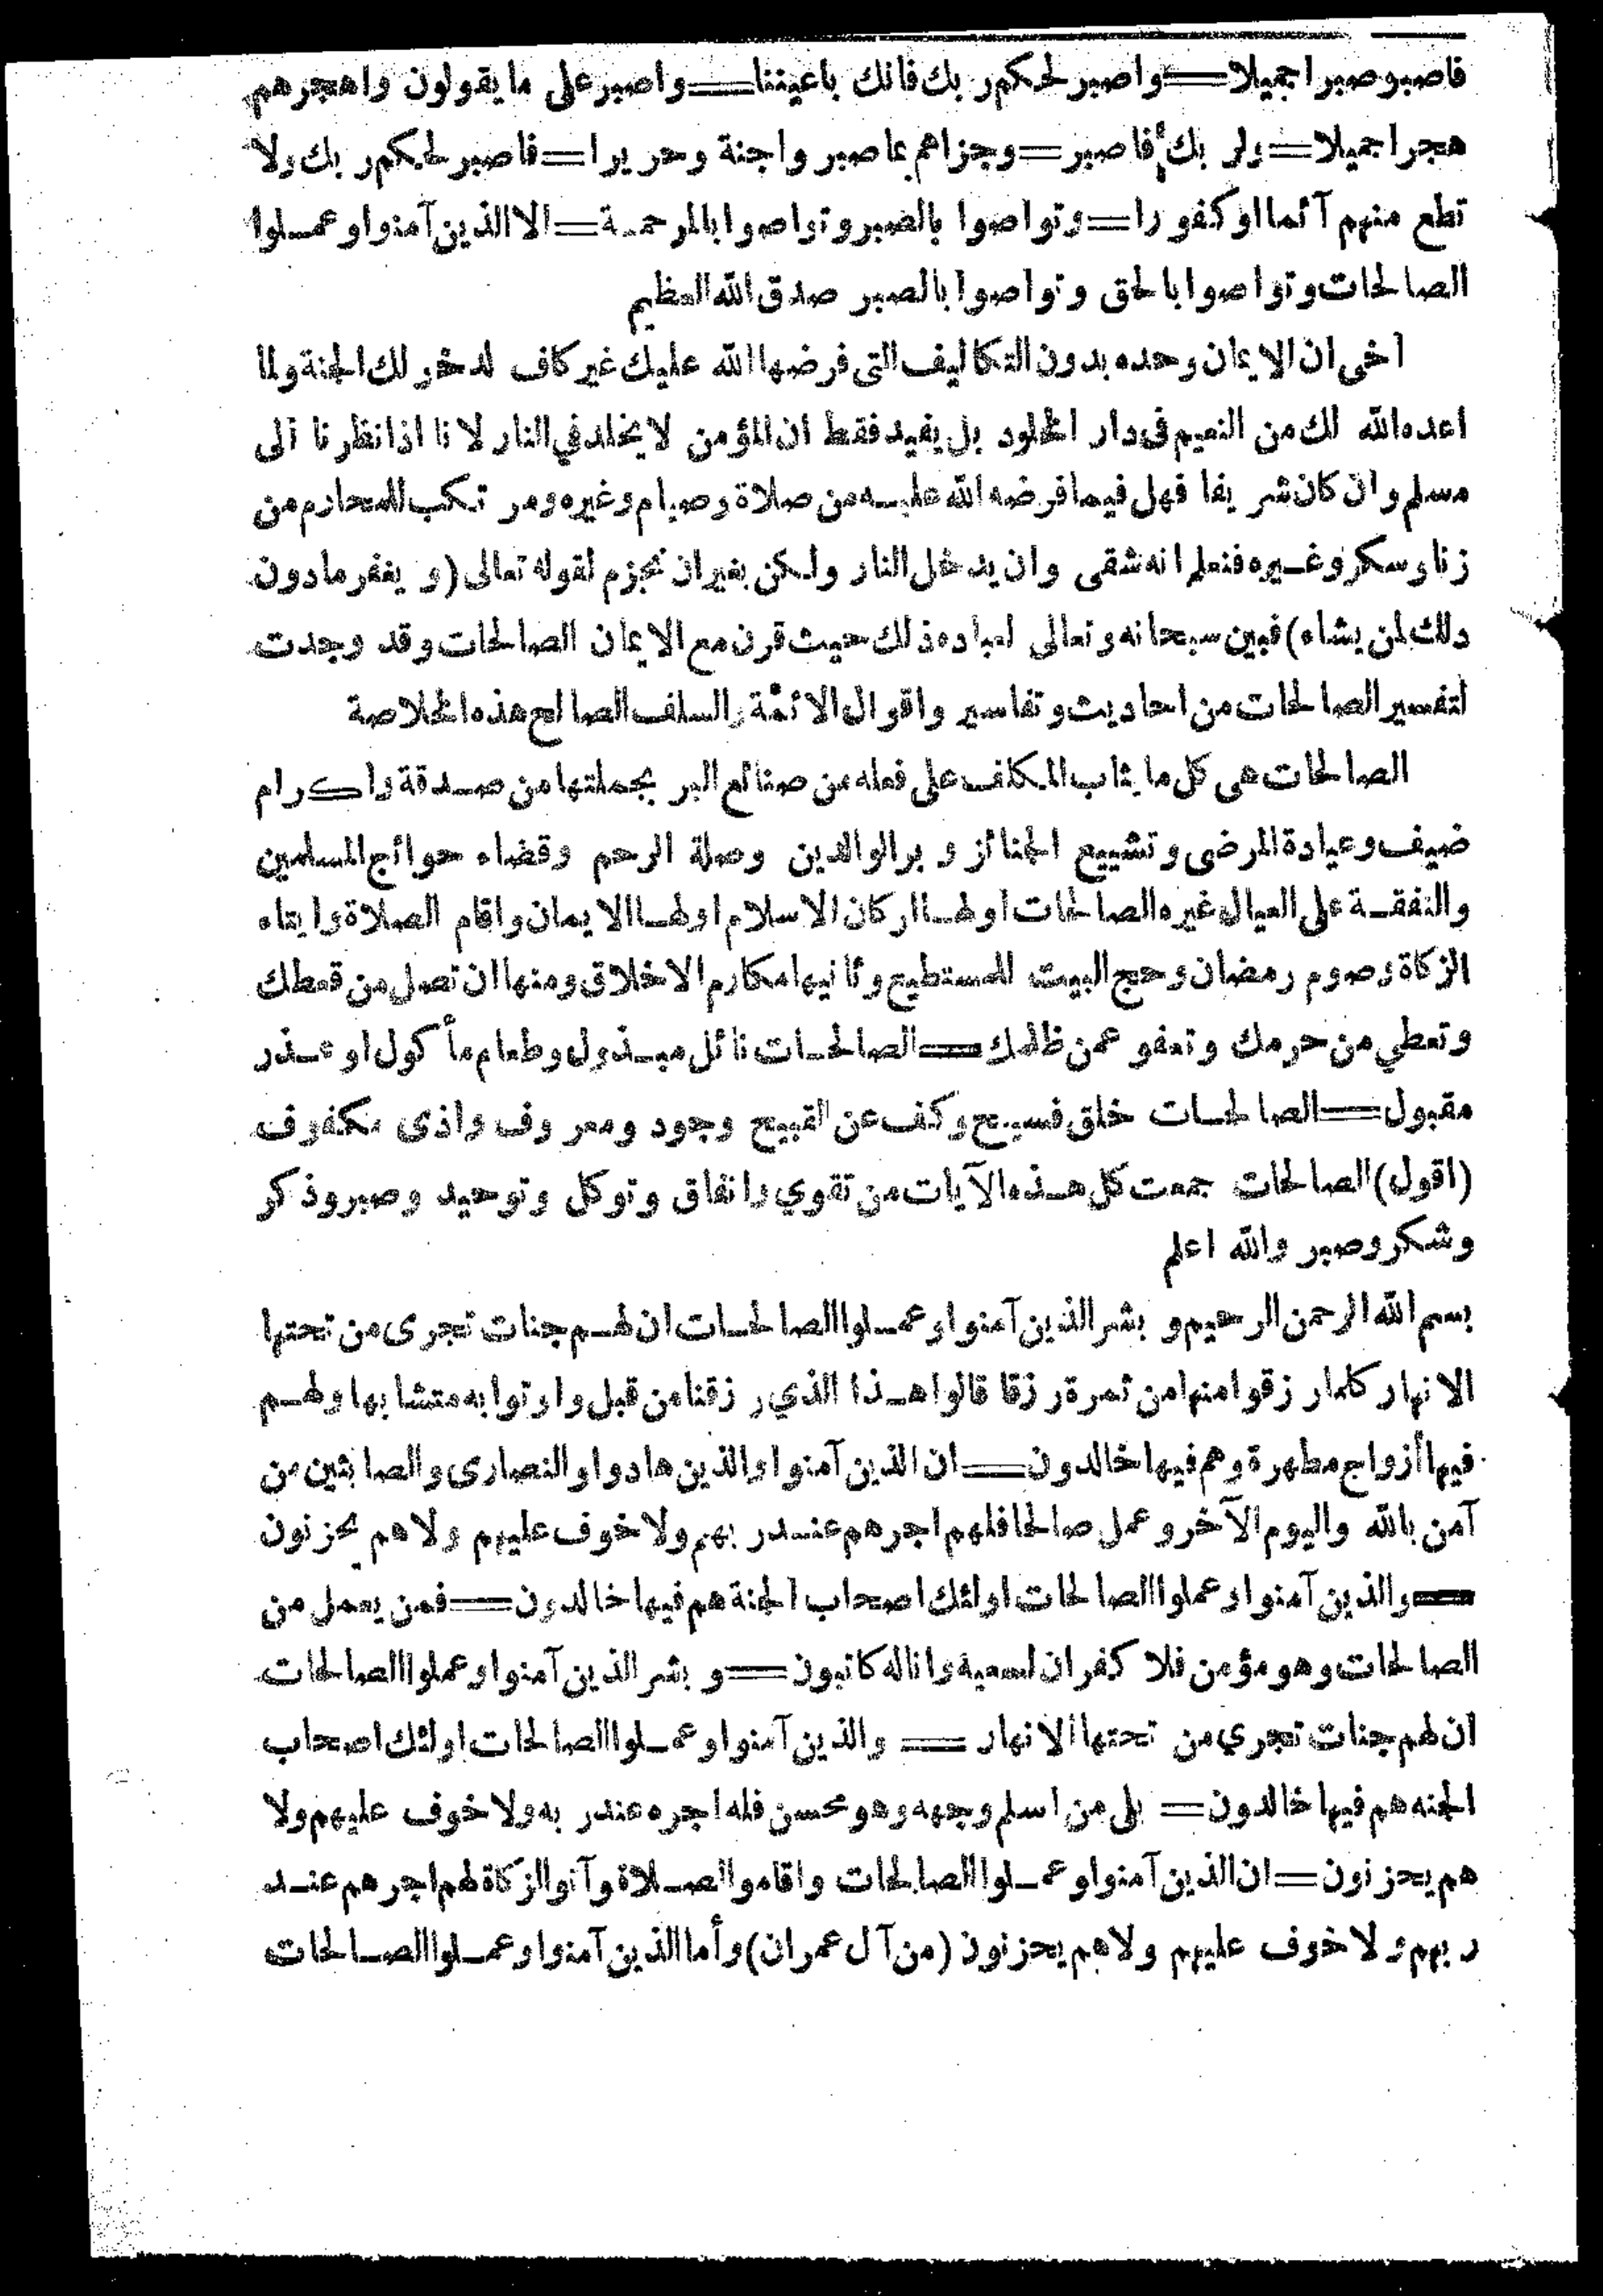 فاصبر صبرا جميلا = واصبر لحكم ربك فانك باعيننا = واصبر على ما يقولون واهجرهم
هجرا جميلا = ولربك فاصبر = وجزاهم بما صبروا جنة وحريرا = فاصبر لحكم ربك ولا
تطع منهم آثما او كفورا = وتواصوا بالصبر وتواصوا بالمرحمة = الا الذين آمنوا وعملوا
الصالحات وتواصوا بالحق وتواصوا بالصبر صدق الله العظيم
اخى ان الايمان وحده بدون التكاليف التى فرضها الله عليك غير كاف لدخولك الجنة ولما
اعده الله لك من النعيم فى دار الخلود بل يفيد فقط ان المؤمن لا يخلد في النار لانا اذا نظرنا الى
مسلم وان كان شريفا فهل فيما فرضه الله عليه من صلاة وصيام وغيره ومرتكب للمحارم من
زنا وسكر وغيره فنعلم انه شقى وان يدخل النار ولكن بغير ان نجزم لقوله تعالى (ويغفر مادون
دلك لمن يشاء) فبين سبحانه وتعالى لعباده ذلك حيث قرن مع الايمان الصالحات وقد وجدت
لتفسير الصالحات من احاديث وتفاسير واقوال الائمة والسلف الصالح هذه الخلاصة
الصالحات هى كل ما يثاب المكلف على فعله من صنائع البر بجملتها من صدقة واكرام
ضيف وعيادة المرضى وتشييع الجنائز وبر الوالدين وصلة الرحم وقضاء حوائج المسلمين
والنفقة على العيال غيره الصالحات اولها اركان الاسلام اولها الايمان واقام الصلاة وايتاء
الزكاة وصوم رمضان وحج البيت للمستطيع وثانيها مكارم الاخلاق ومنها ان تصل من قمطك
وتعطي من حرمك وتعفو عمن ظلمك = الصالحات نائل مبذول وطعام مأكول او عذر
مقبول = الصالحات خلق فسيح وكف عن القبيح وجود ومعروف واذى مكفوف
(اقول) الصالحات جمعت كل هذه الآيات من تقوي وانفاق وتوكل وتوحيد وصبر وذكر
وشكر وصبر والله اعلم
بسم الله الرحمن الرحيم وبشر الذين آمنوا وعملوا الصالحات ان لهم جنات تجرى من تحتها
الانهار كلما رزقوا منها من ثمرة رزقا قالوا هذا الذي رزقنا من قبل واوتوا به متشابها ولهم
فيها أزواج مطهرة وهم فيها خالدون = ان الذين آمنوا والذين هادوا والنصارى والصابئين من
آمن بالله واليوم الآخر وعمل صالحا فلهم اجرهم عند ربهم ولا خوف عليهم ولا هم يحزنون
= والذين آمنوا وعملوا الصالحات اولئك اصحاب الجنة هم فيها خالدون = فمن يعمل من
الصالحات وهو مؤمن فلا كفران لسعيه وانا له كاتبون = وبشر الذين آمنوا وعملوا الصالحات
ان لهم جنات تجري من تحتها الانهار = والذين آمنوا وعملوا الصالحات اولئك اصحاب
الجنه هم فيها خالدون = بلى من اسلم وجهه وهو محسن فله اجره عند ربه ولا خوف عليهم ولا
هم يحزنون = ان الذين آمنوا وعملوا الصالحات واقاموا الصلاة وآتوا الزكاة لهم اجرهم عند
ربهم ولا خوف عليهم ولا هم يحزنون (من آل عمران) وأما الذين آمنوا وعملوا الصالحات